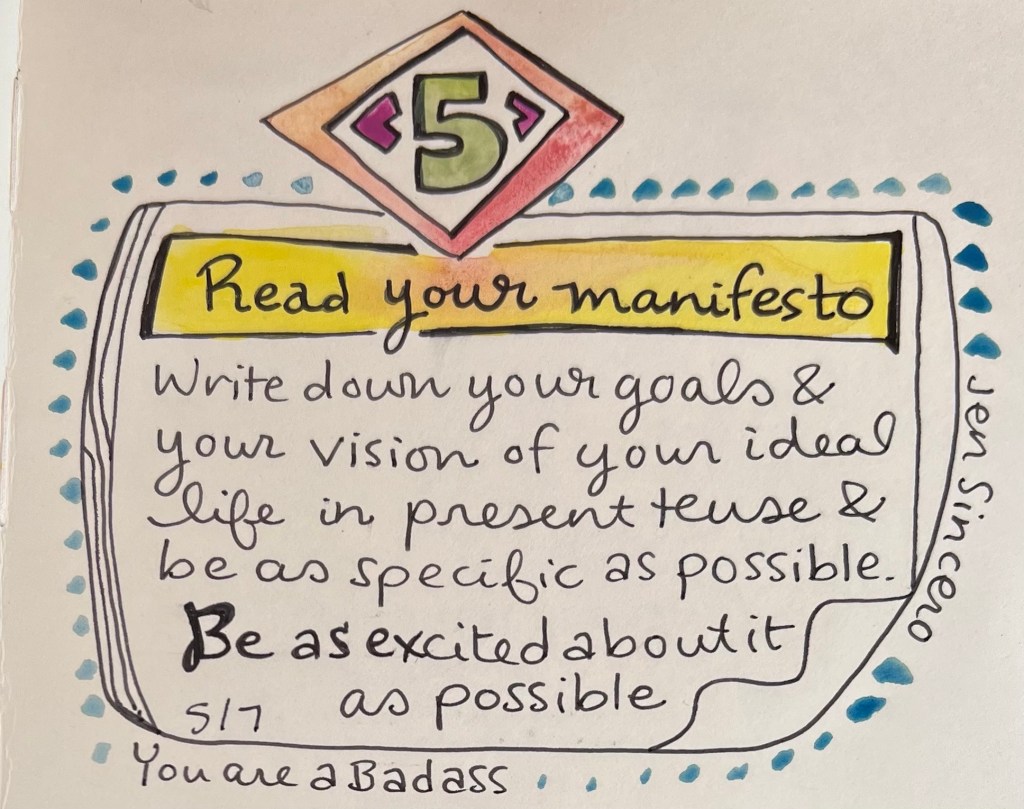 5
Read your manifesto
Write down your goals &
your vision of your ideal
life in present tense &
be as specific as possible.
Be as excited about it
as possible
5/7
You are a Badass
Jen Sincero